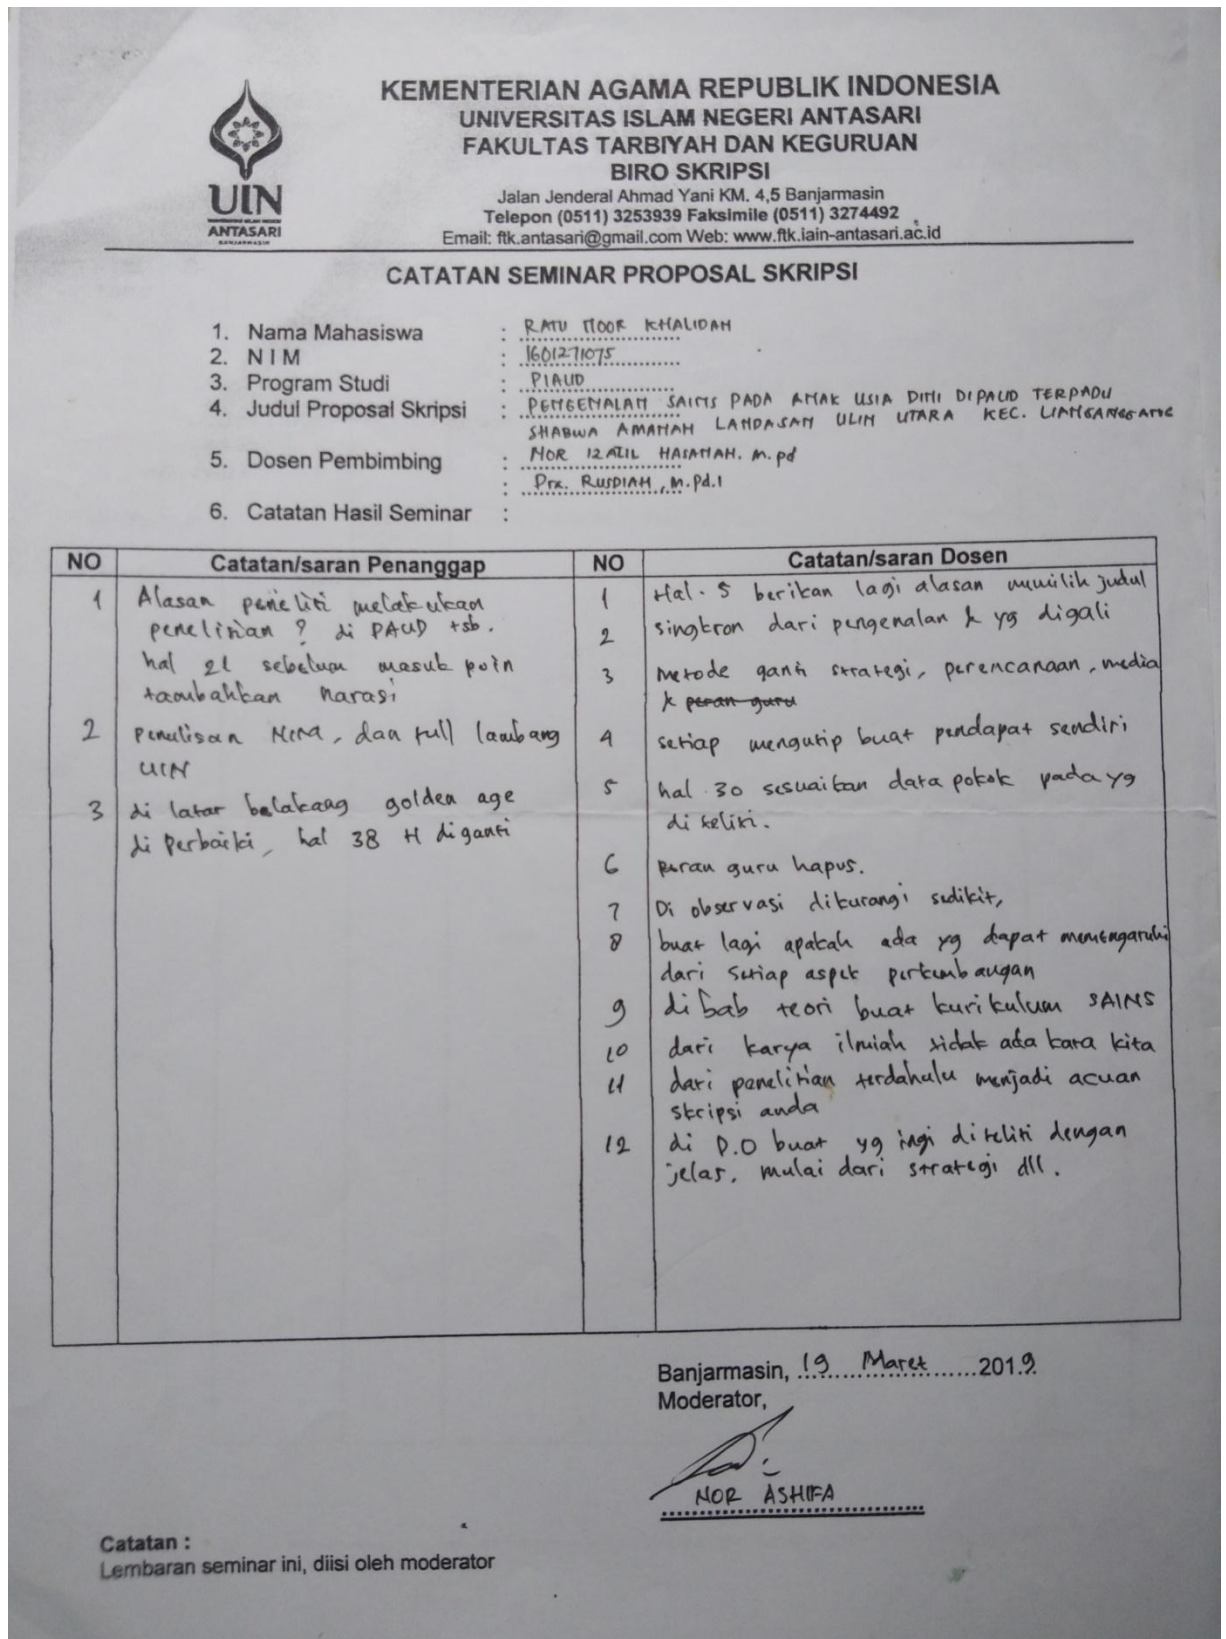 KEMENTERIAN AGAMA REPUBLIK INDONESIA
UNIVERSITAS ISLAM NEGERI ANTASARI
FAKULTAS TARBIYAH DAN KEGURUAN
BIRO SKRIPSI
Jalan Jenderal Ahmad Yani KM. 4,5 Banjarmasin
Telepon (0511) 3253939 Faksimile (0511) 3274492
Email: ftk.antasari@gmail.com Web: www.ftk.iain-antasari.ac.id
UIN
ANTASARI
BANJARMASIN
CATATAN SEMINAR PROPOSAL SKRIPSI
1. Nama Mahasiswa : RATU NOOR KHALIDAH
2. N I M : 1601271075
3. Program Studi : PIAUD
4. Judul Proposal Skripsi : PENGENALAN SAINS PADA ANAK USIA DINI DIPAUD TERPADU
SHABWA AMANAH LANDASAN ULIN UTARA KEC. LIANGANGGANG
5. Dosen Pembimbing : NOR IZATIL HASANAH. M.pd
: Dra. RUSDIAH, M.Pd.I
6. Catatan Hasil Seminar :
NO Catatan/saran Penanggap
1 Alasan peneliti melakukan
penelitian ? di PAUD tsb.
hal 21 sebelum masuk poin
tambahkan narasi
2 penulisan NIM, dan full lambang
UIN
3 di latar belakang golden age
di perbaiki, hal 38 H diganti
NO Catatan/saran Dosen
1 Hal. 5 berikan lagi alasan memilih judul
2 singkron dari pengenalan & yg digali
3 Metode ganti strategi, perencanaan, media
& peran guru
4 setiap mengutip buat pendapat sendiri
5 hal 30 sesuaikan data pokok pada yg
di teliti.
6 peran guru hapus.
7 Di observasi dikurangi sedikit,
8 buat lagi apakah ada yg dapat memengaruhi
dari setiap aspek perkembangan
9 di bab teori buat kurikulum SAINS
10 dari karya ilmiah tidak ada kata kita
11 dari penelitian terdahulu menjadi acuan
skripsi anda
12 di D.O buat yg ingi diteliti dengan
jelas, mulai dari strategi dll.
Banjarmasin, 19 Maret 2019
Moderator,
NOR ASHIFA
Catatan :
Lembaran seminar ini, diisi oleh moderator